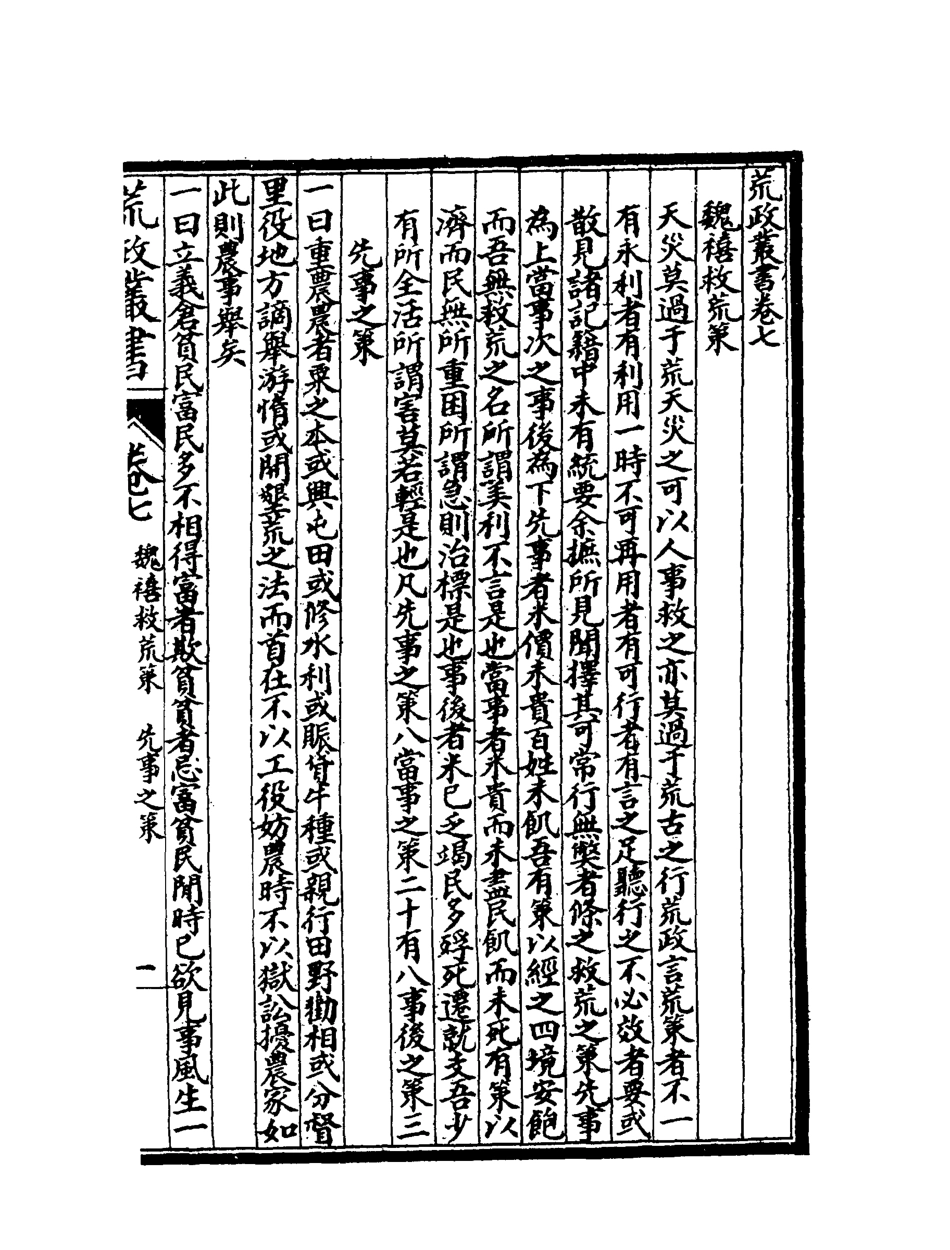 荒政叢書卷七
魏禧救荒策
天災莫過于荒天災之可以人事救之亦莫過于荒古之行荒政言荒策者不一
有永利者有利用一時不可再用者有可行者有言之足聽行之不必效者要或
散見諸記籍中未有統要余摭所見聞擇其可常行無弊者條之救荒之策先事
為上當事次之事後為下先事者米價未貴百姓未飢吾有策以經之四境安飽
而吾無救荒之名所謂美利不言是也當事者米貴而未盡民飢而未死有策以
濟而民無所重困所謂急則治標是也事後者米已乏竭民多殍死遷就支吾少
有所全活所謂害莫若輕是也凡先事之策八當事之策二十有八事後之策三
先事之策
一曰重農農者粟之本或興屯田或修水利或賑貸牛種或親行田野勸相或分督
里役地方謫舉游惰或開墾荒之法而首在不以工役妨農時不以獄訟擾農家如
此則農事舉矣
一曰立義倉貧民富民多不相得富者欺貧貧者忌富貧民閒時已欲見事風生一
荒政叢書
卷七
魏禧救荒策 先事之策
一